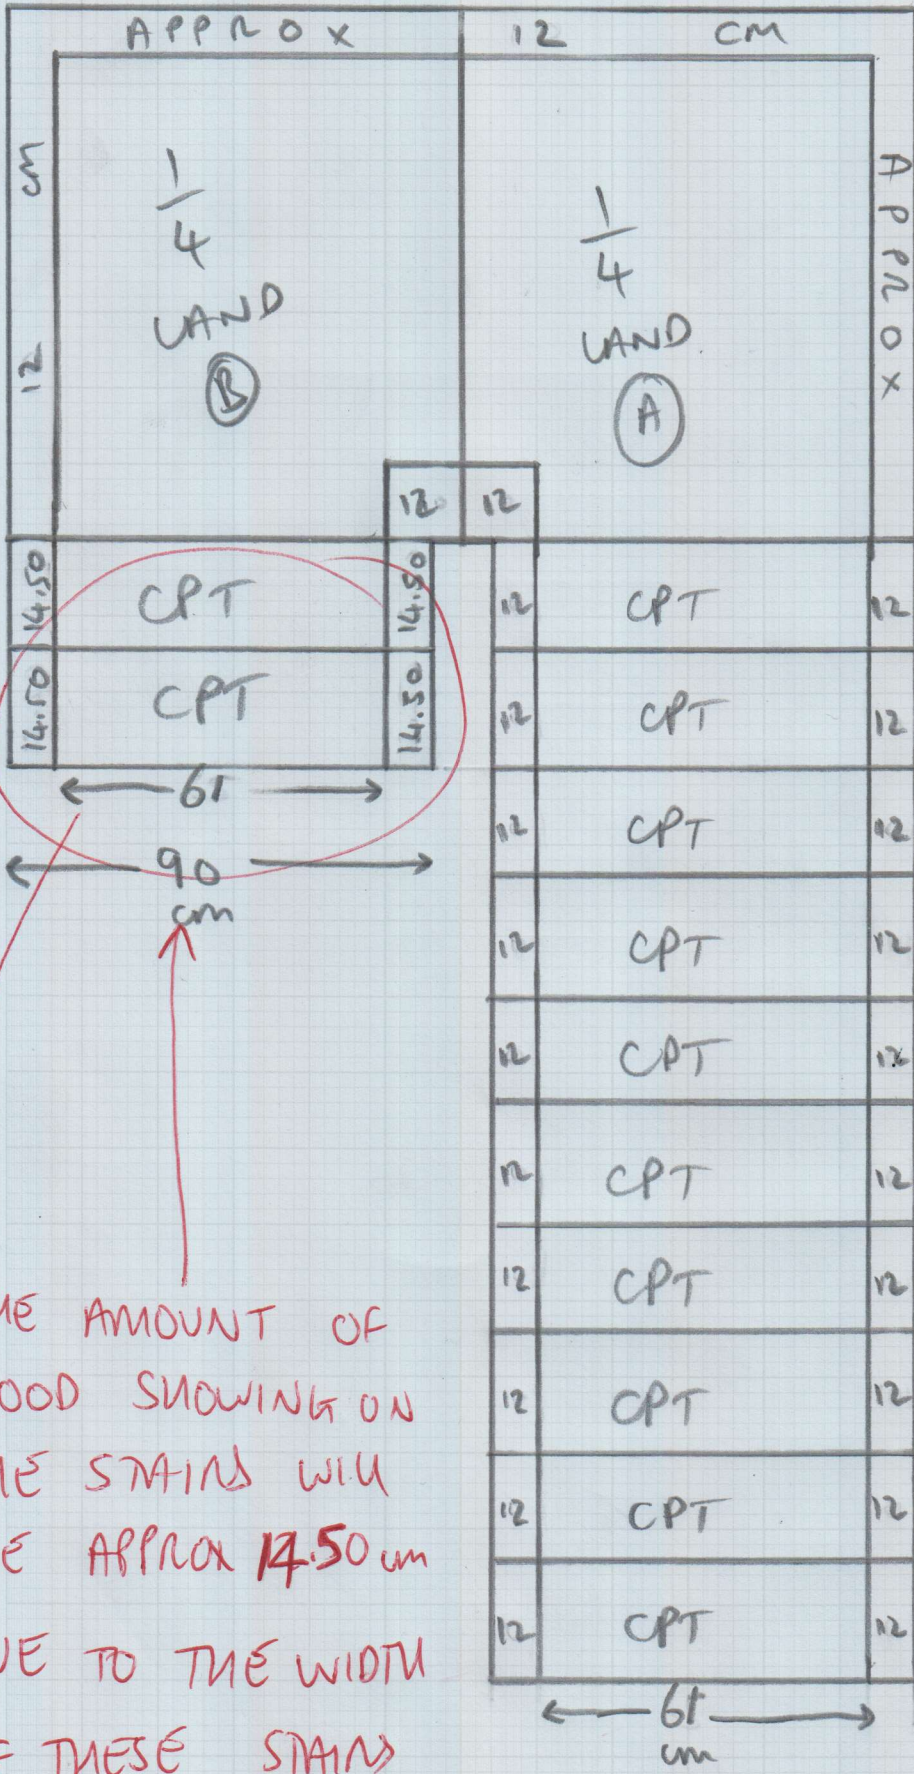 APPROX 12 CM
12 cm
APPROX
1/4
LAND
B
1/4
LAND
A
12 12
14.50 CPT 14.50
14.50 CPT 14.50
61
90
cm
12 CPT 12
12 CPT 12
12 CPT 12
12 CPT 12
12 CPT 12
12 CPT 12
12 CPT 12
12 CPT 12
12 CPT 12
12 CPT 12
61
cm
HE AMOUNT OF
OOD SHOWING ON
HE STAIRS WILL
E APPROX 14.50 cm
UE TO THE WIDTH
F THESE STAIRS